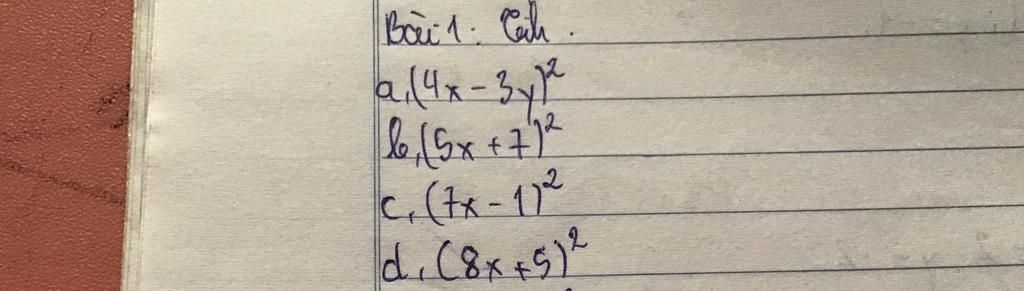 Bài 1: Tính.
a, (4x - 3y)²
b, (5x + 7)²
c, (7x - 1)²
d, (8x + 5)²